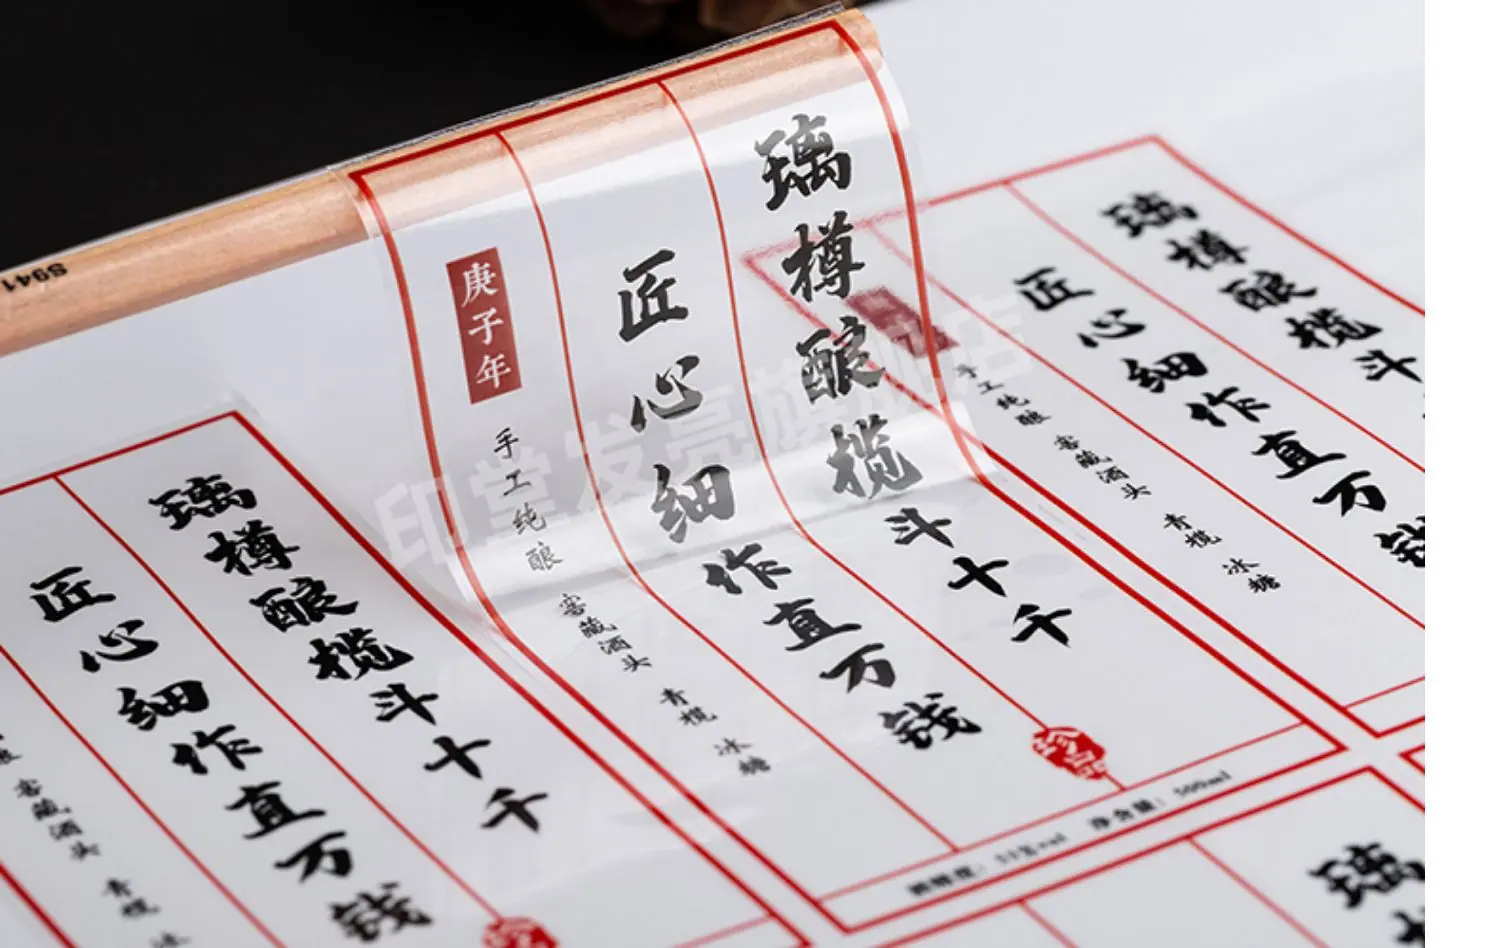 S941
璃樽酿榄斗十千
匠心细作直万钱
庚子年
手工纯酿 窖藏酒头 青榄 冰糖
珍品
净含量：500ml
印堂发亮旗舰店
璃樽酿榄斗
匠心细作直万钱
手工纯酿 窖藏酒头 青榄 冰糖
璃樽酿榄斗十千
匠心细作直万钱
窖藏酒头 青榄 冰
璃